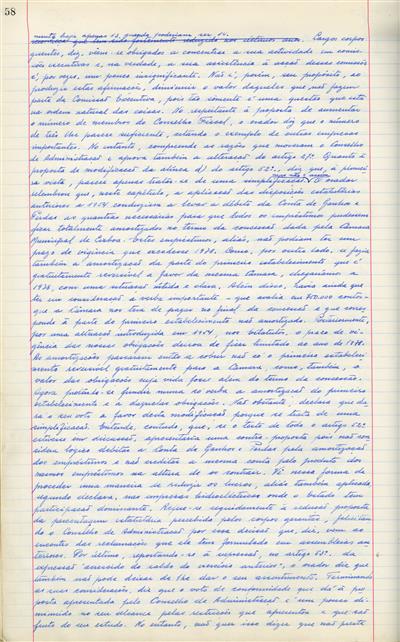 58
mente haja apenas 13, quando poderiam ser 54.
reconhece que tem sido fortemente reduzido nos últimos anos. Cargos corpo-
quentes, diz, vêem-se obrigados a concentrar a sua actividade em comis-
sões executivas e, na verdade, a sua assistência à acção dessas comissões
é, por vezes, um pouco insignificante. Não é, porém, seu propósito, ao
produzir estas afirmações, diminuir o valor daqueles que não fazem
parte da Comissão Executiva, pois tão somente é uma questão que está
na ordem natural das coisas. No respeitante à proposta de aumentar
o número de membros do Conselho Fiscal, o orador diz que o número
de três lhe parece suficiente, citando o exemplo de outras empresas
importantes. No entanto, compreende as razões que moveram o Conselho
de Administração e aprova também a alteração do artigo 21º. Quanto à
proposta de modificação da alínea d) do artigo 52º, diz que, à primei-
ra vista, parece apenas tratar-se de uma simplificação, mas não é assim. O orador
relembrou que, neste capítulo, a aplicação das disposições estatutárias
anteriores a 1954 conduziram a levar a débito da Conta de Ganhos e
Perdas as quantias necessárias para que todos os empréstimos pudessem
ficar totalmente amortizados no termo da concessão dada pela Câmara
Municipal de Lisboa. Estes empréstimos, aliás, não podiam ter um
prazo de vigência que excedesse 1938. Como, por outro lado, se fazia
também a amortização da parte do primeiro estabelecimento que é
gratuitamente reversível a favor da mesma Câmara, chegaríamos a
1938, com uma situação nítida e clara. Além disso, havia ainda que
ter em consideração a verba importante - que avalia em 400.000 contos -
que a Câmara nos terá de pagar no final da concessão e que corres-
ponde à parte do primeiro estabelecimento não amortizado. Posteriormente,
por uma alteração introduzida em 1954, nos estatutos, o prazo de vi-
gência das nossas obrigações deixou de ficar limitado ao ano de 1938.
As amortizações passaram então a cobrir não só o primeiro estabeleci-
mento reversível gratuitamente para a Câmara, como, também, o
valor das obrigações cuja vida fosse além do termo da concessão.
Agora pretende-se fundir numa só verba a amortização do primeiro
estabelecimento e a daquelas obrigações. Não obstante, declara que da-
rá o seu voto a favor desta modificação porque se trata de uma
simplificação. Entende, contudo, que, se o texto de todo o artigo 52º
estivesse em discussão, apresentaria uma contra-proposta pois não con-
sidera lógico debitar a Conta de Ganhos e Perdas pela amortização
dos empréstimos e não creditar a mesma conta pelo produto dos
mesmos empréstimos na altura de os contrair. Vê nessa forma de
proceder uma maneira de reduzir os lucros, aliás também aplicada,
segundo declara, nas empresas hidroeléctricas onde o Estado tem
participação dominante. Refere-se seguidamente à redução proposta
da percentagem estatutária percebida pelos corpos gerentes, felicitan-
do o Conselho de Administração por essa decisão que, diz, vem ao
encontro das reclamações que ele tem formulado em assembleias an-
teriores. Por último, reportando-se à expressão, no artigo 53º, da
expressão "acrescido do saldo do exercício anterior", o orador diz que
também não pode deixar de lhe dar o seu assentimento. Terminando
as suas considerações, diz que o voto de conformidade que dá à pro-
posta apresentada pelo Conselho de Administração é um pouco di-
minuído no seu alcance pelas restrições que apresentou e que são
fruto de seu estudo. No entanto, não quer isso dizer que não preste